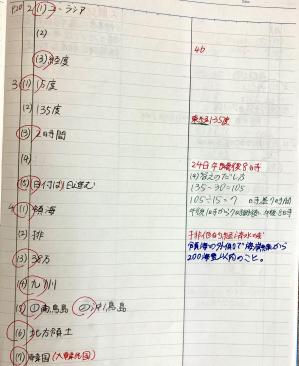 P20 2 (1) ユーラシア
(2)
4b
(3) 経度
3 (1) 15度
(2) 135度
東経135度
(3) 2時間
(4)
24日午後8時
(4)答えのだし方
135-30=105
105÷15=7 時差7時間
(5) 日付は1日進む
4 (1) 領海
(2) 排
排他的経済水域
領海の外側で海岸線から
200海里以内のこと。
(3) 38万
(4) 九州
(5) ① 南鳥島 ② 沖ノ鳥島
(6) 北方領土
(7) 韓国 (大韓民国)